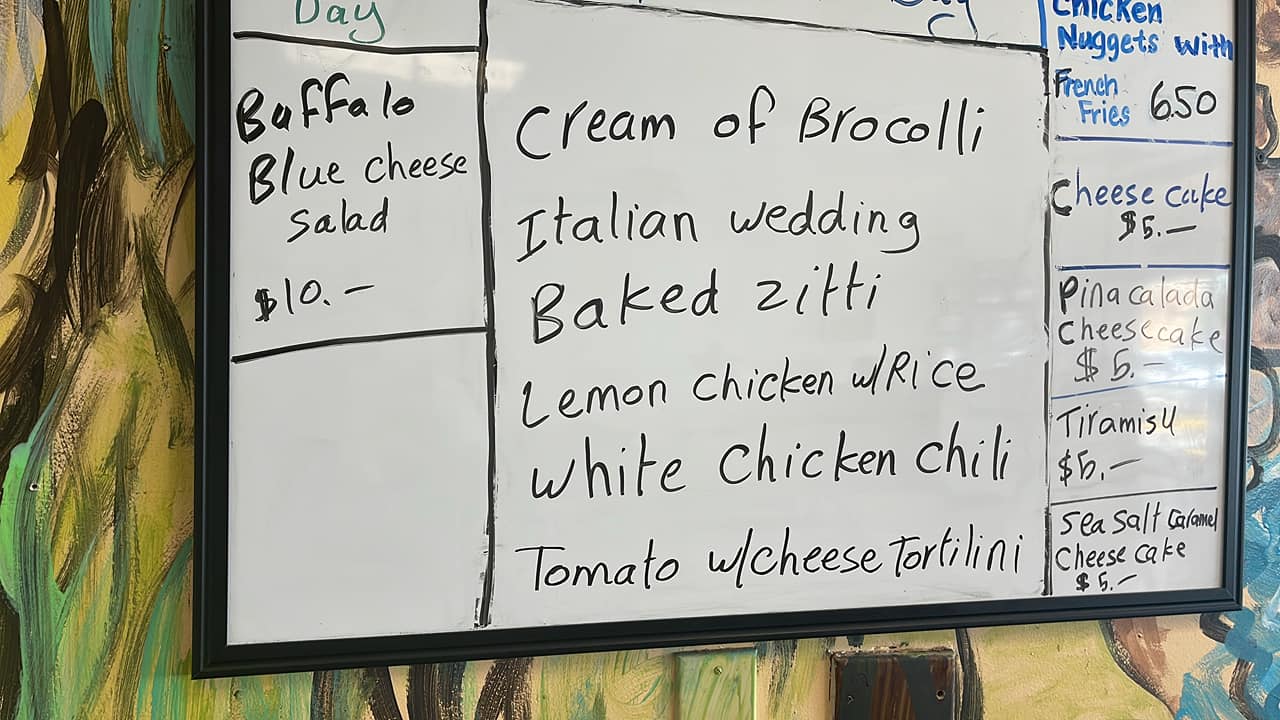 Day
Buffalo
Blue cheese
Salad
$10.-
Cream of Brocolli
Italian wedding
Baked zitti
Lemon chicken w/Rice
white chicken chili
Tomato w/cheese Tortilini
Chicken
Nuggets with
French
Fries 6.50
Cheese cake
$5.-
Pina calada
cheesecake
$5.-
Tiramisu
$5.-
Sea Salt Caramel
Cheese cake
$5.-